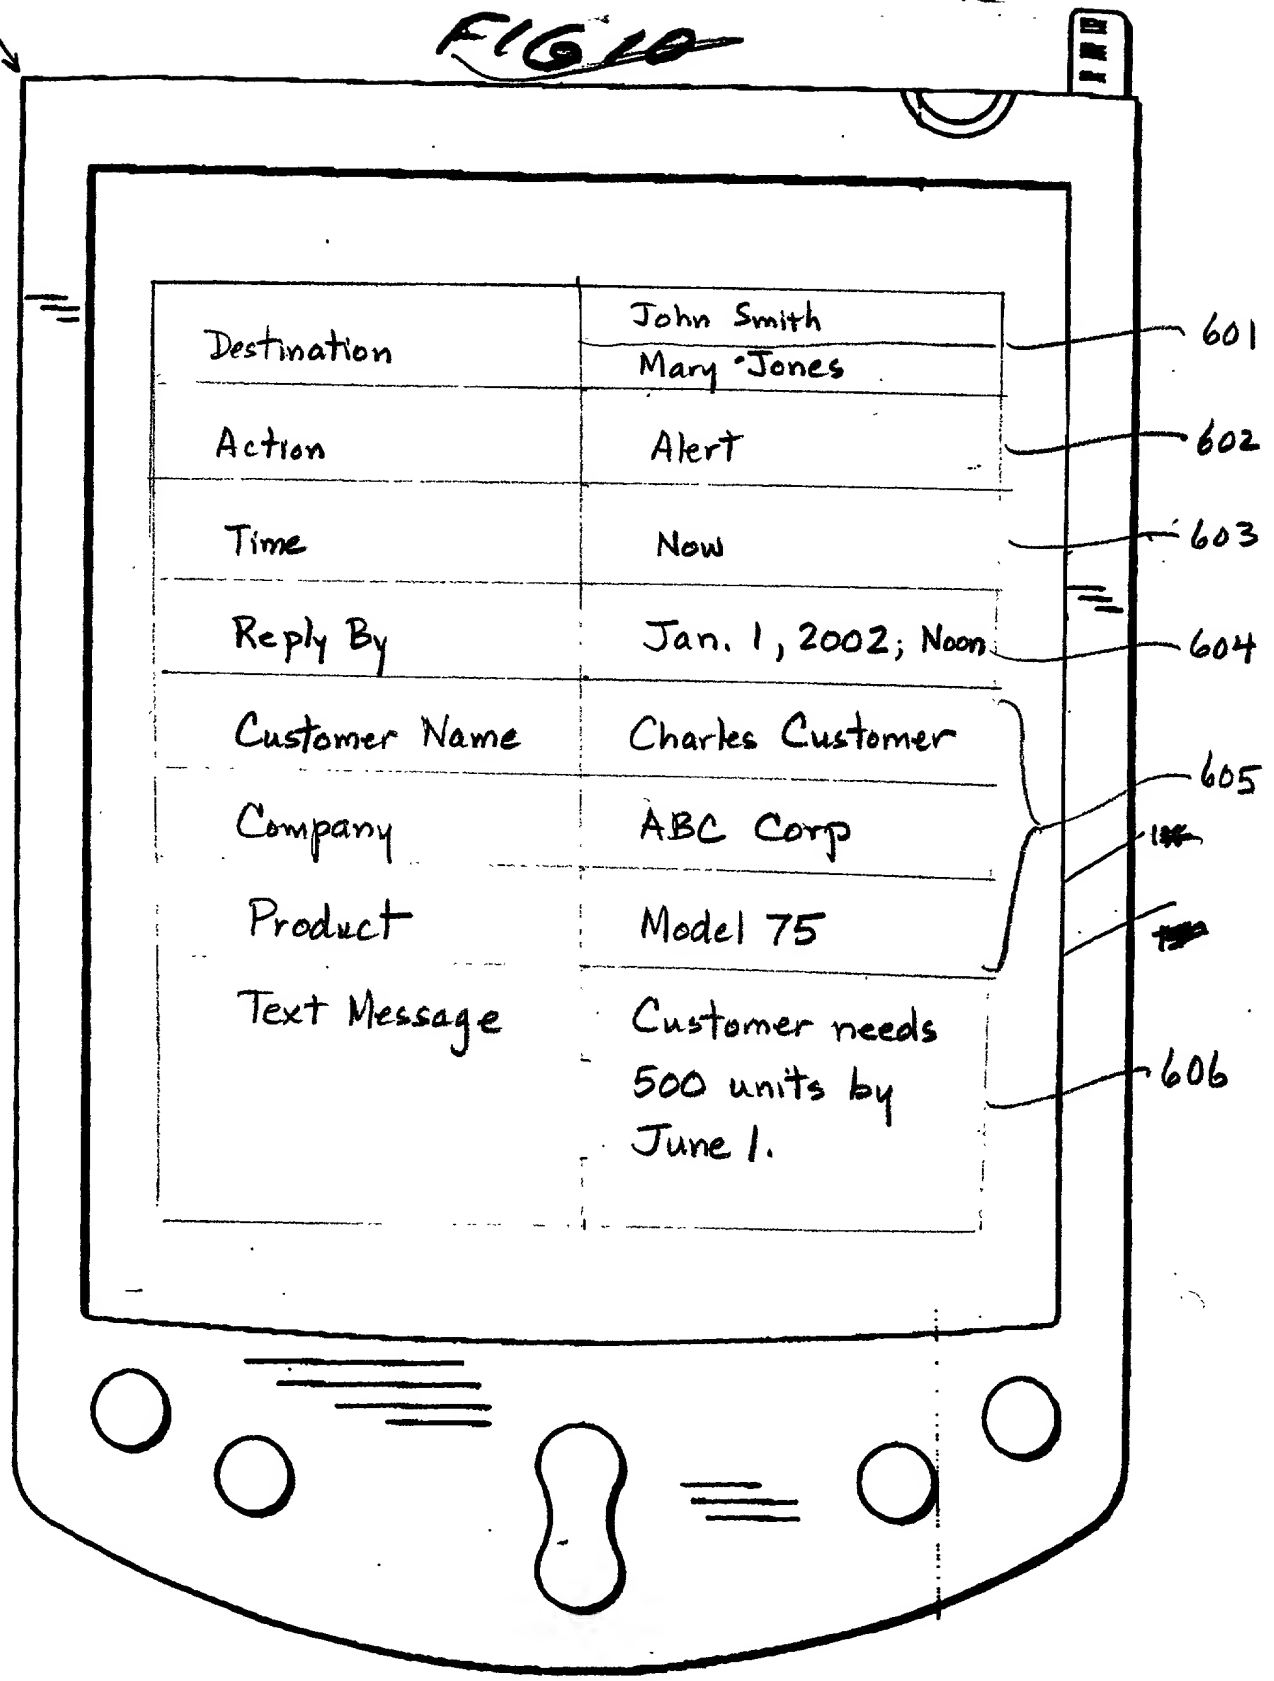 FIG 10
Destination
John Smith
Mary Jones
601
Action
Alert
602
Time
Now
603
Reply By
Jan. 1, 2002; Noon
604
Customer Name
Charles Customer
605
Company
ABC Corp
Product
Model 75
Text Message
Customer needs
500 units by
June 1.
606